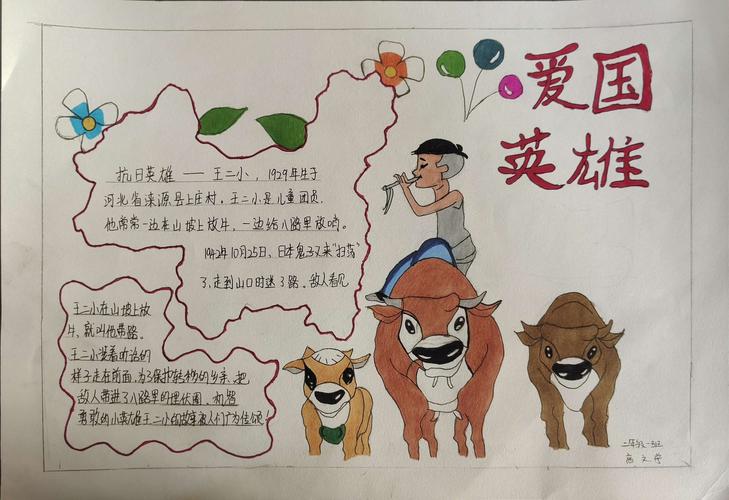 爱国
英雄
抗日英雄 —— 王二小，1929年生于
河北省涞源县上庄村。王二小是儿童团员，
他常常一边在山坡上放牛，一边给八路军放哨。
1942年10月25日、日本鬼子又来"扫荡"
了，走到山口时迷了路。敌人看见
王二小在山坡上放
牛、就叫他带路。
王二小装着听话的
样子走在前面，为了保护转移的乡亲，把
敌人带进了八路军的埋伏圈，机智
勇敢的小英雄王二小的故事被人们广为传颂！
二年级一班